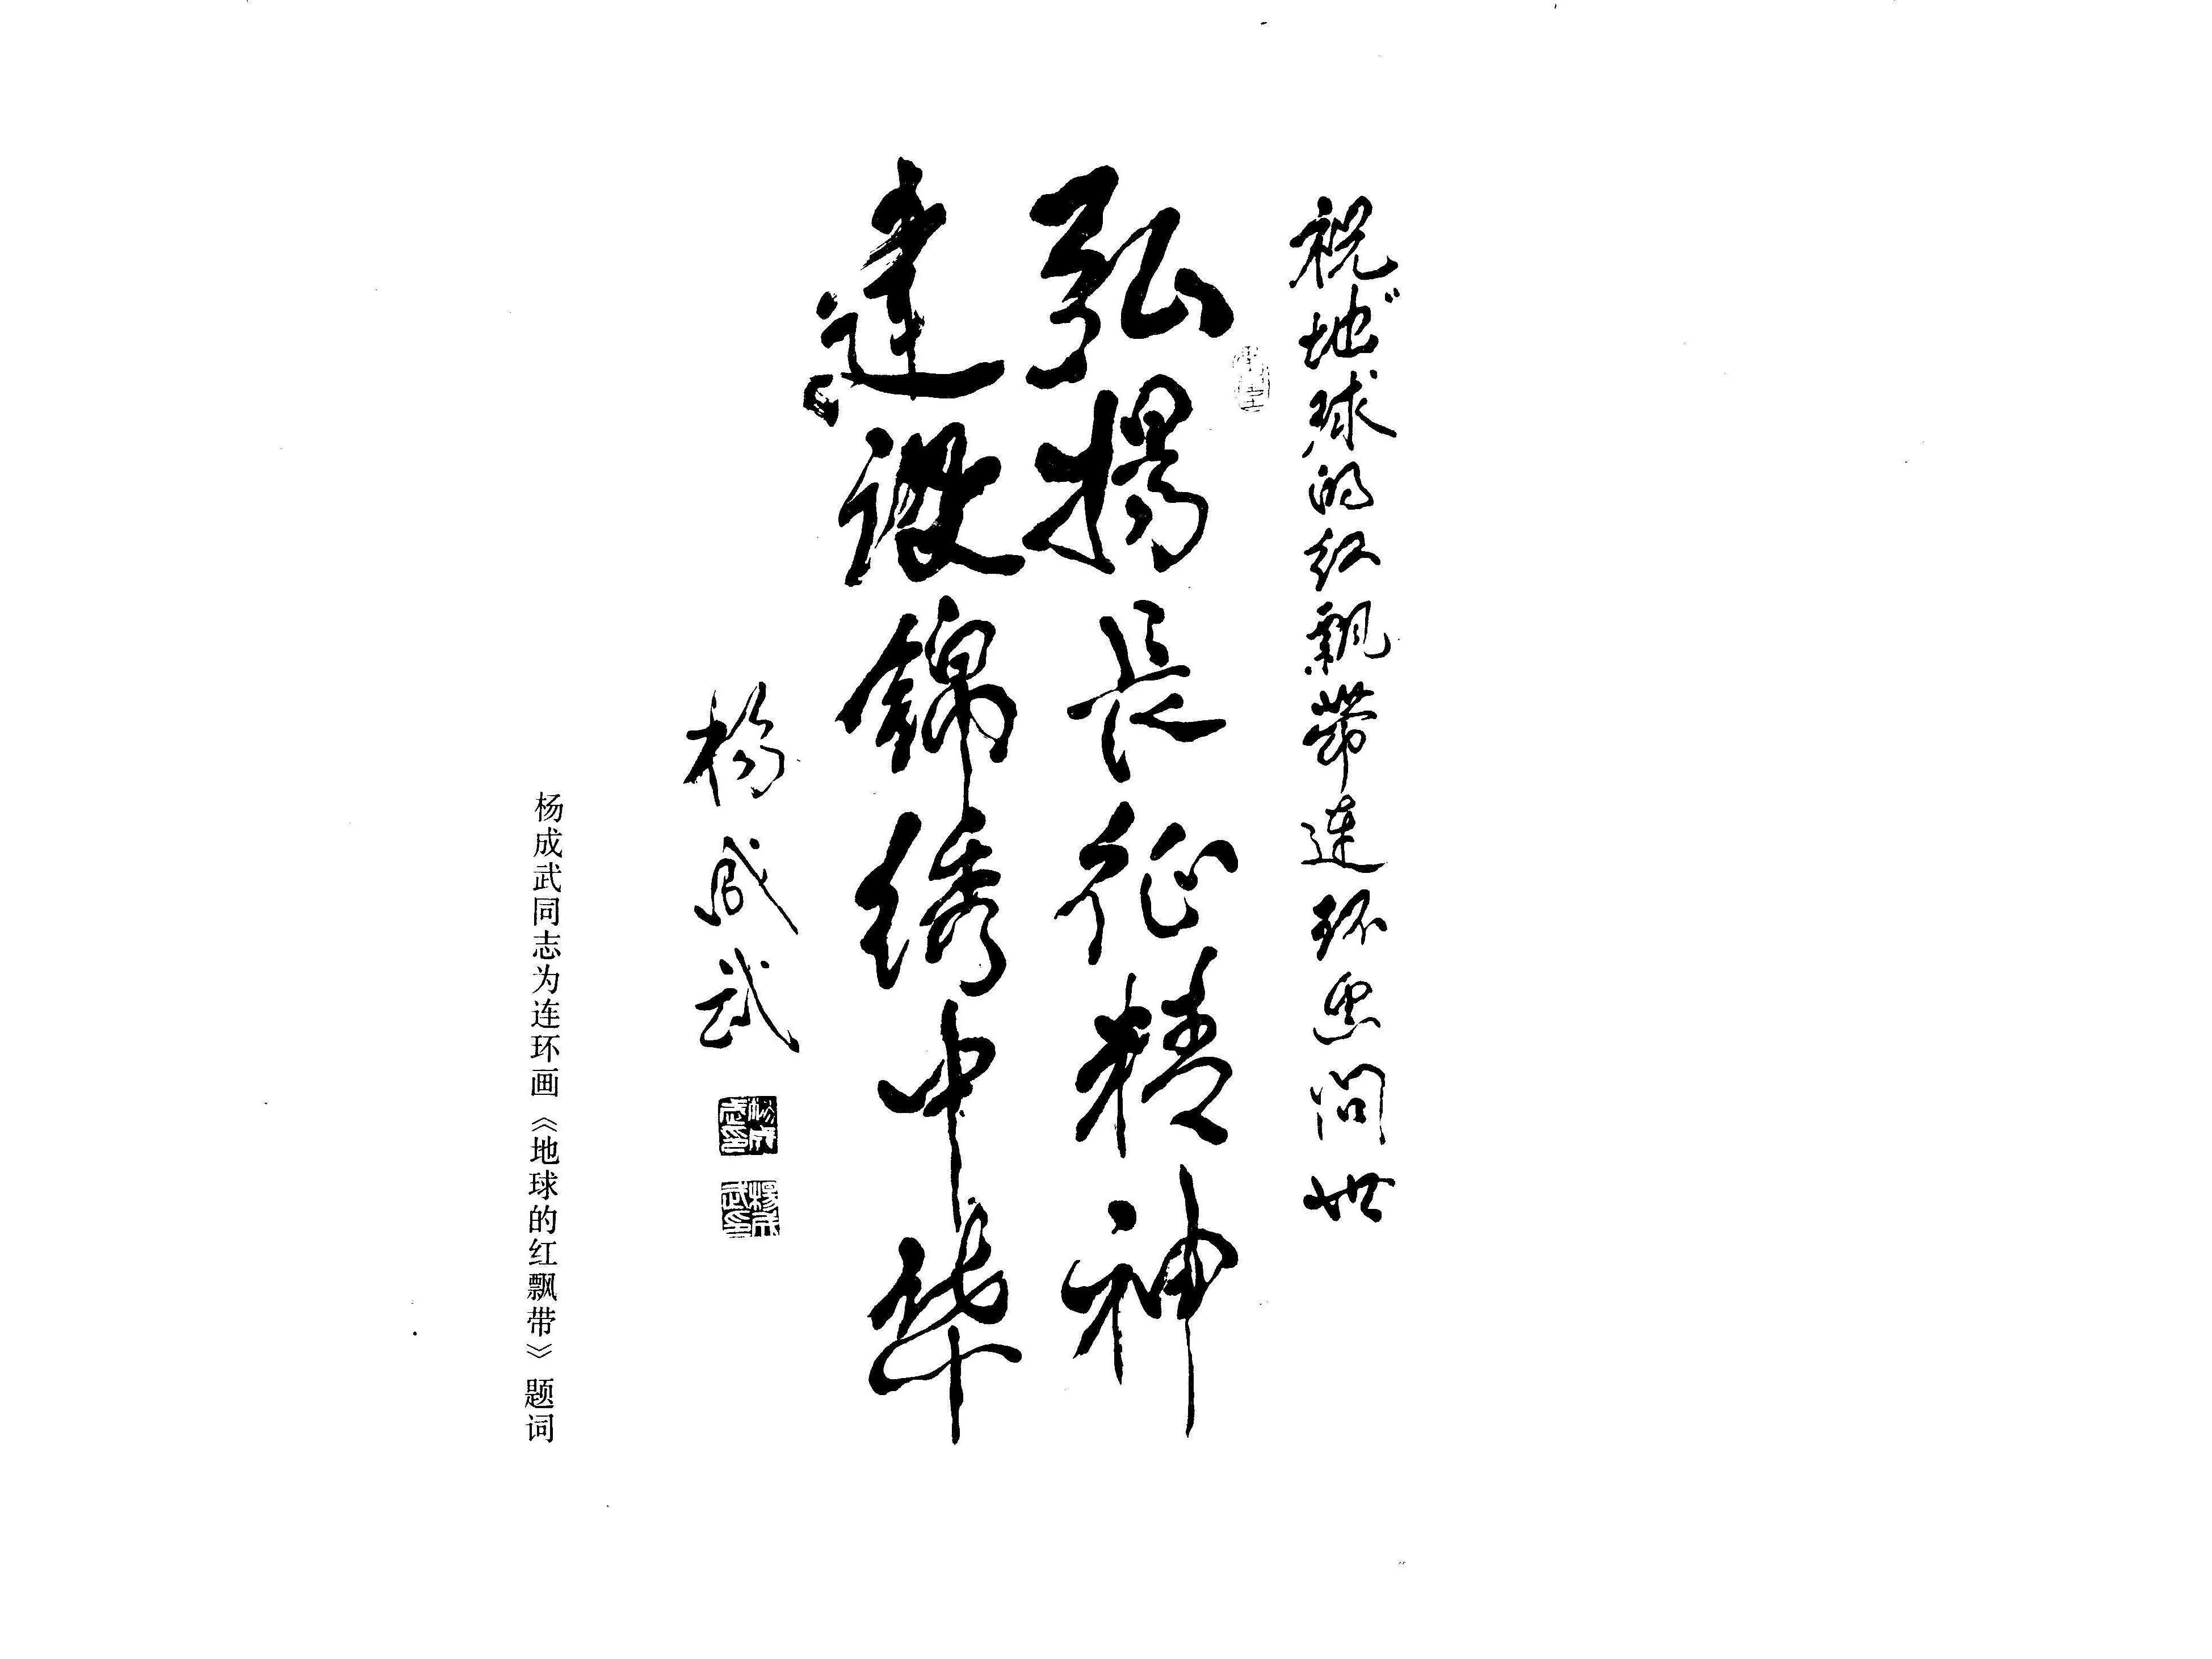 祝地球的红飘带连环画问世
弘揚長征精神
建設錦绣中华
杨成武
杨成武同志为连环画《地球的红飘带》题词